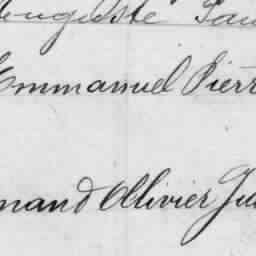 Auguste Pau
Emmanuel Pierr
mand Ollivier Ju